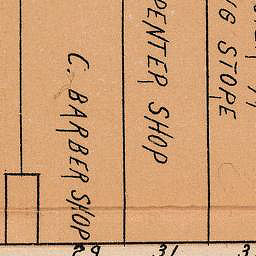 C. BARBER SHOP
PENTER SHOP
G STORE
29
31
3